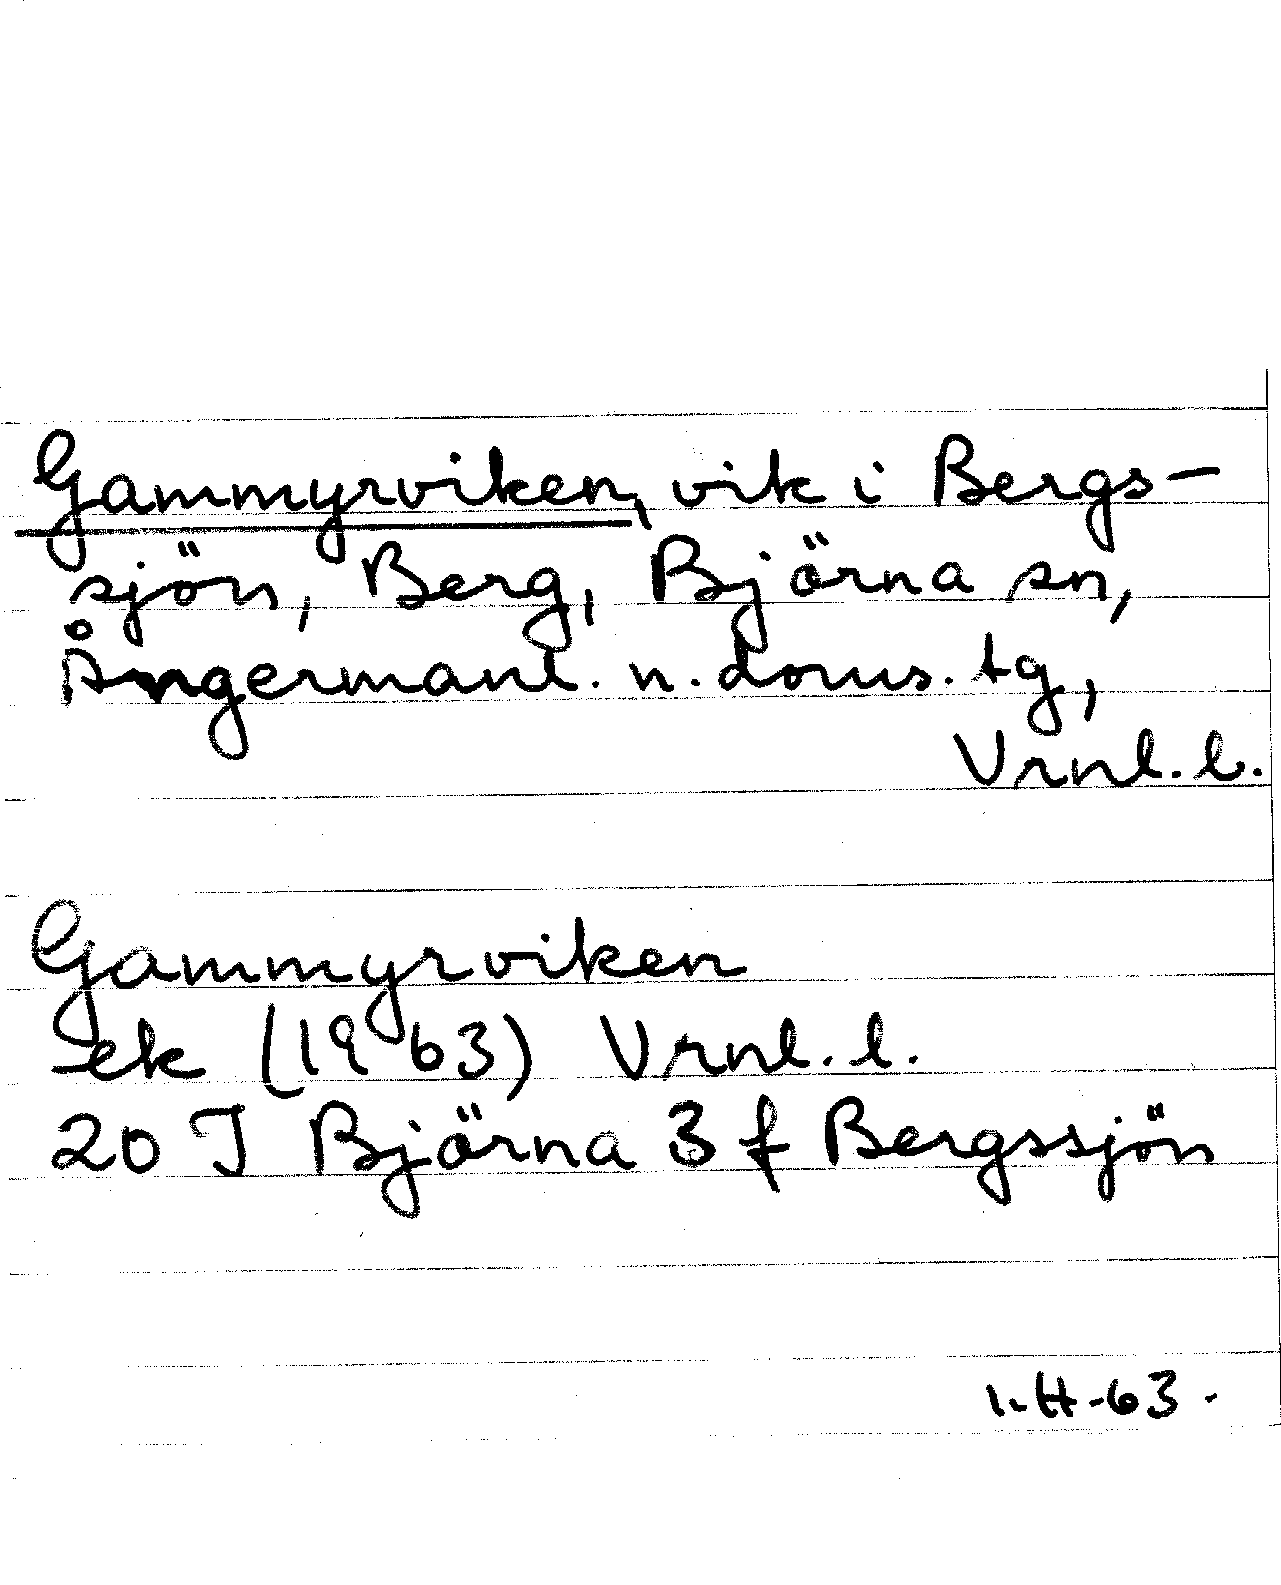 Gammyrviken, vik i Bergs-
sjön, Berg, Björna sn,
Ångermanl. n. doms. tg,
Vrnl. l.
Gammyrviken
ek (1963) Vrnl. l.
20 J Björna 3 f Bergssjön
I.H-63.